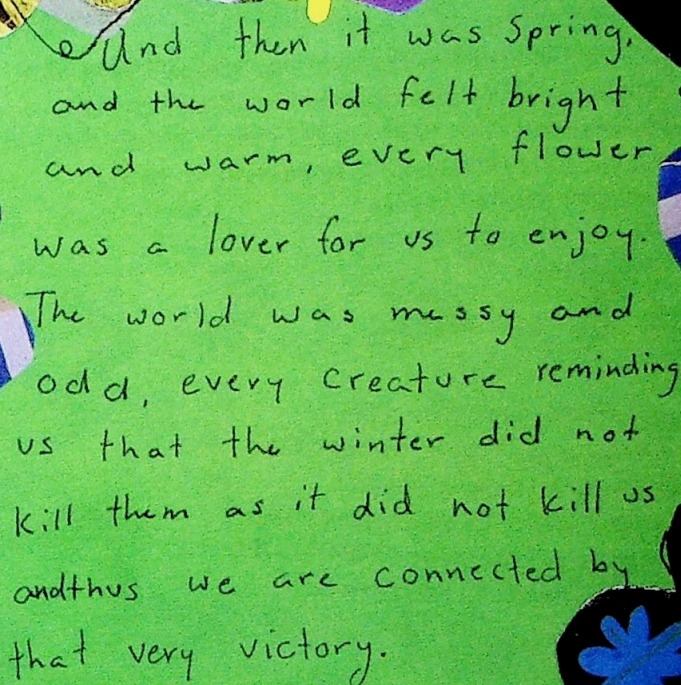 And then it was Spring,
and the world felt bright
and warm, every flower
was a lover for us to enjoy.
The world was messy and
odd, every creature reminding
us that the winter did not
kill them as it did not kill us
andthus we are connected by
that very victory.